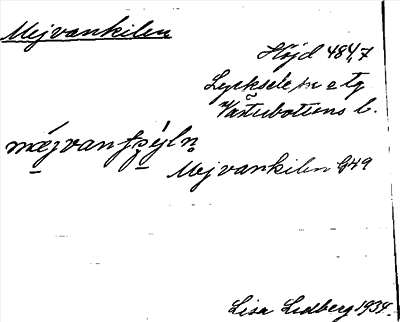 Mejvankilen
Höjd 484,7
Lycksele sn o tg
Västerbottens l.
Mejvankilen G49
Lisa Lidberg 1934.